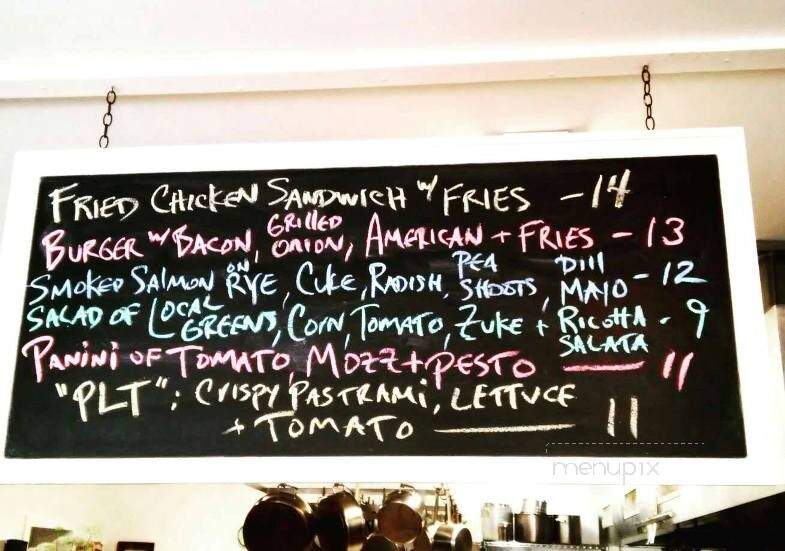 FRIED CHICKEN SANDWICH W/ FRIES - 14
BURGER W/ BACON, GRILLED ONION, AMERICAN + FRIES - 13
SMOKED SALMON ON RYE, CUKE, RADISH, PEA SHOOTS, DILL MAYO - 12
SALAD OF LOCAL GREENS, CORN, TOMATO, ZUKE + RICOTTA SALATA - 9
PANINI OF TOMATO, MOZZ + PESTO — 11
"PLT": CRISPY PASTRAMI, LETTUCE
+ TOMATO — 11
menupix